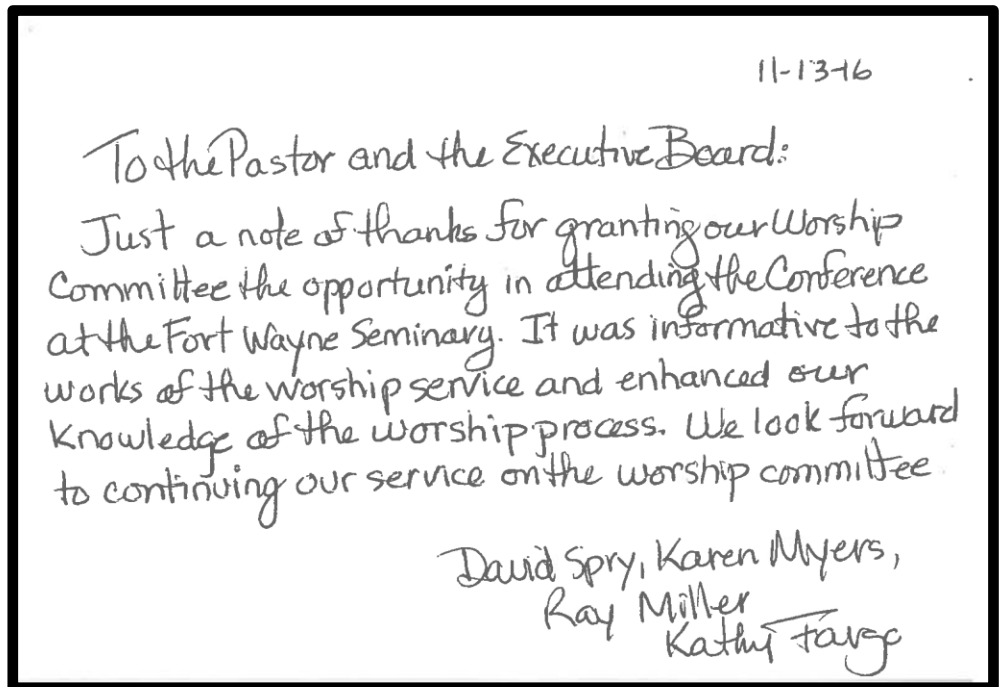 11-13-16
To the Pastor and the Executive Board:
Just a note of thanks for granting our Worship
Committee the opportunity in attending the Conference
at the Fort Wayne Seminary. It was informative to the
works of the worship service and enhanced our
knowledge of the worship process. We look forward
to continuing our service on the worship committee
David Spry, Karen Myers,
Ray Miller
Kathy Fargo